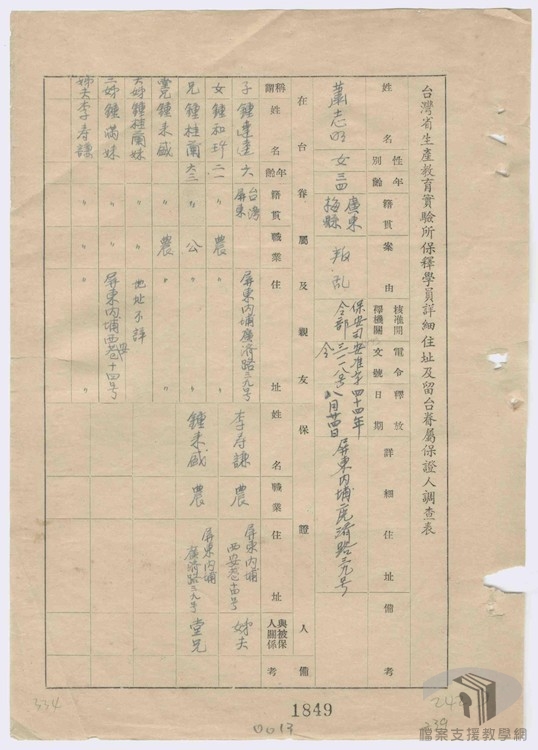 台灣省生產教育實驗所保釋學員詳細住址及留台眷屬保證人調查表
姓名 性別 年齡 籍貫 案由 核准開釋機關 電令文號 釋放日期 詳細住址 備考
蕭志明 女 三四 廣東梅縣 叛亂 保安司令部 安准字三一八号令 四十四年八月廿四日 屏東內埔廣濟路三九号
在台眷屬及親友 保證人
稱謂 姓名 年齡 籍貫 職業 住址 姓名 職業 住址 與被保人關係 備考
子 鍾達達 六 台灣屏東 屏東內埔廣濟路三九号 李存謙 農 屏東內埔西安巷十四号 姊夫
女 鍾和玶 二一 〃 農 〃
兄 鍾桂蘭 六二 〃 公 〃 鍾來盛 農 屏東內埔廣濟路三九号 堂兄
堂兄 鍾來盛 〃 農 〃
大姊 鍾桂蘭妹 〃 地址不詳
三姊 鍾滿妹 〃 屏東內埔西安巷十四号
姊夫 李存謙 〃 〃
334
1849
0013
248
239
檔案支援教學網